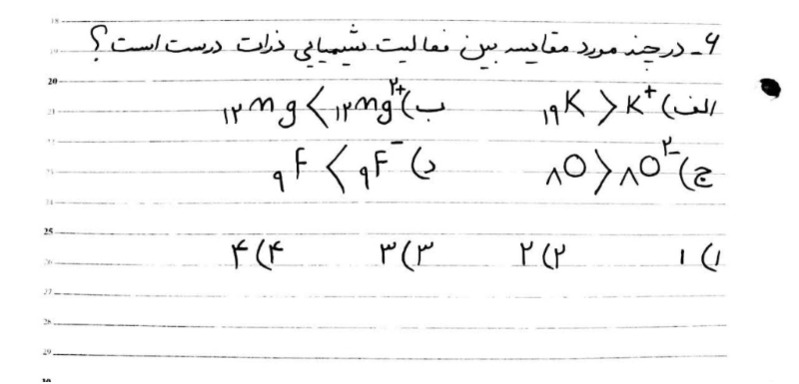 ۶- در چند مورد مقایسه بین فعالیت شیمیایی ذرات درست است؟
الف) ₁₉K > K⁺ ب) ₁₂mg < ₁₂mg²⁺
ج) ₈O > ₈O²⁻ د) ₉F < ₉F⁻
۱) ۱ ۲) ۲ ۳) ۳ ۴) ۴